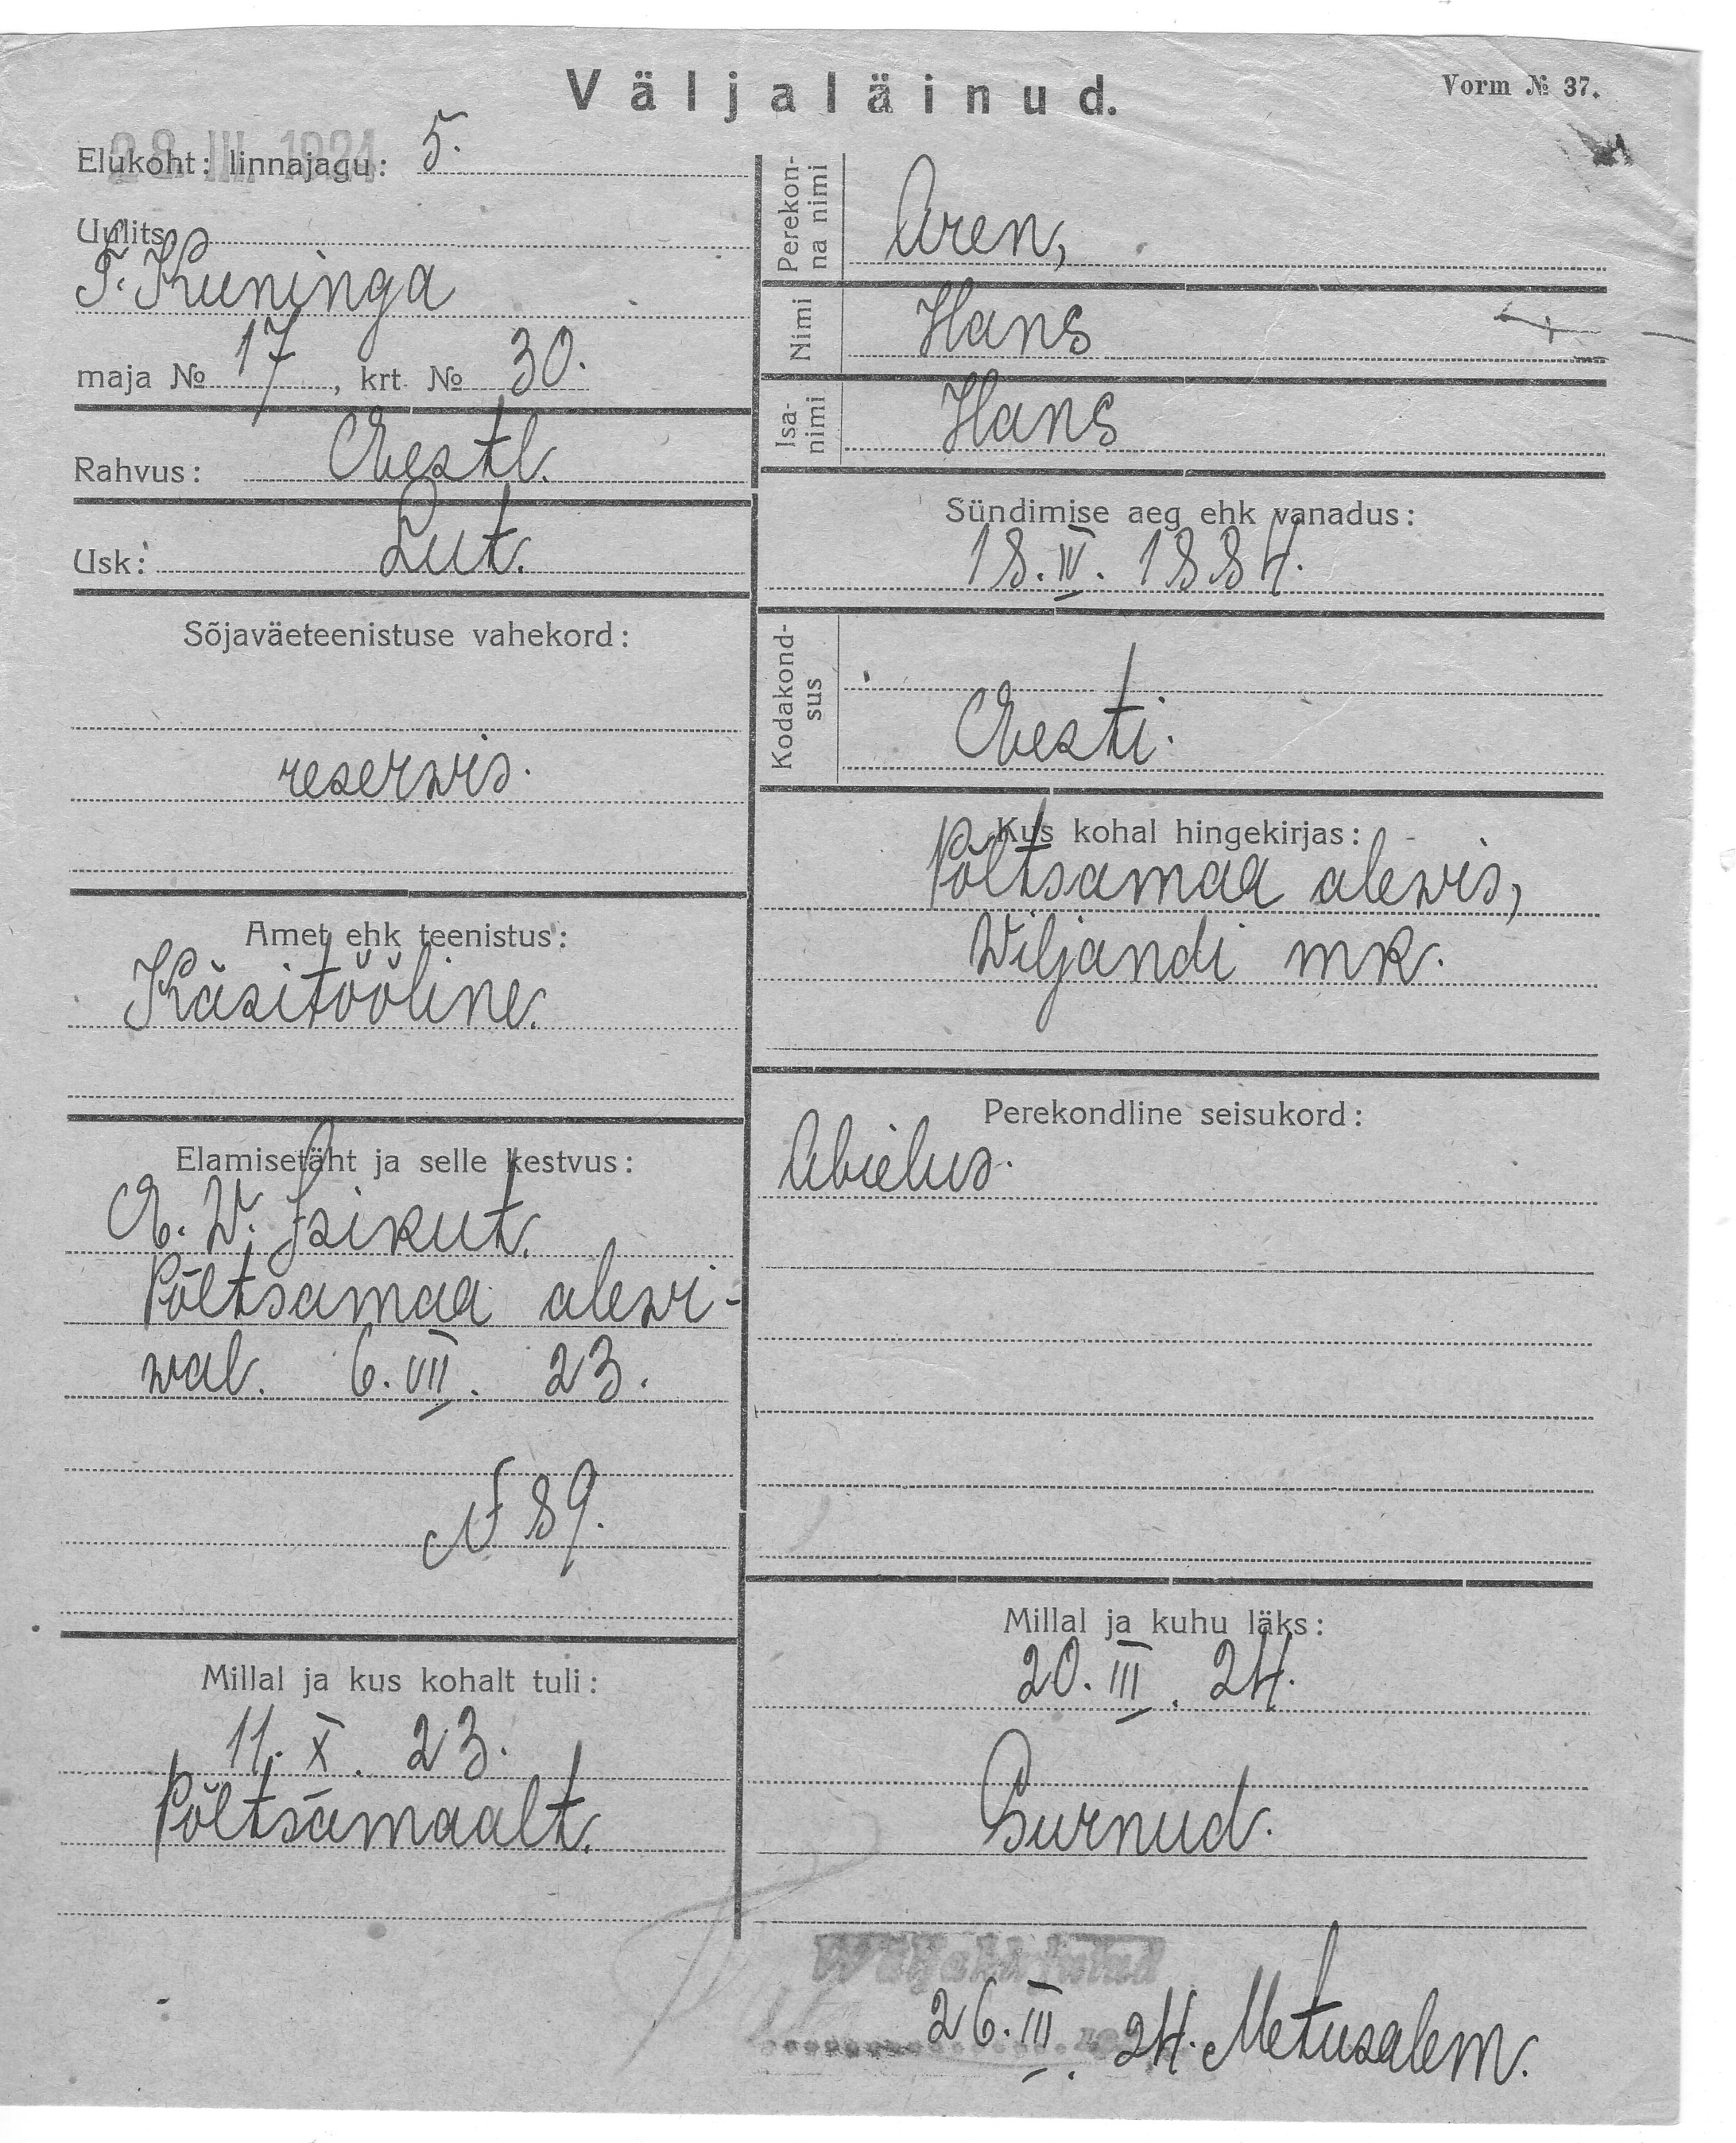 Väljaläinud.
Vorm № 37.
28 III 1924
Elukoht: linnajagu: 5.
Uulits
T. Kuninga
maja № 17, krt. № 30.
Rahvus: Eestl.
Usk: Lut.
Sõjaväeteenistuse vahekord:
reserwis.
Amet ehk teenistus:
Käsitööline.
Elamisetäht ja selle kestvus:
E. W. Isikut.
Põltsamaa alewi-
wal. 6. VII. 23.
№ 89.
Millal ja kus kohalt tuli:
11. X. 23.
Põltsamaalt.
Perekon-
na nimi
Aren,
Nimi
Hans
Isa-
nimi
Hans
Sündimise aeg ehk vanadus:
18. IV. 1884.
Kodakond-
sus
Eesti.
Kus kohal hingekirjas:
Põltsamaa alewis,
Wiljandi mk.
Perekondline seisukord:
Abielus.
Millal ja kuhu läks:
20. III. 24.
Surnud.
26. III. 24. Metusalem.